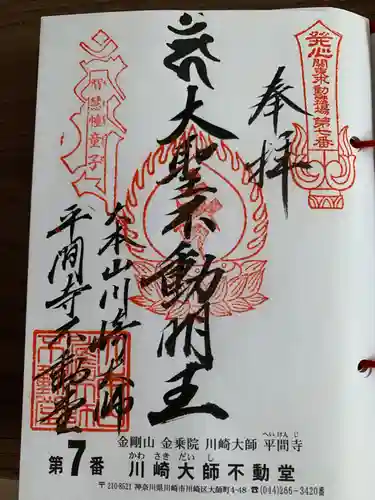 発心 関東不動霊場 第七番
奉拝
大聖不動明王
智慧幢童子
大本山川崎大師
平間寺不動堂
へいけんじ
金剛山 金乗院 川崎大師 平間寺
かわさきだいし
第7番 川崎大師不動堂
〒210-8521 神奈川県川崎市川崎区大師町4-48・☎(044)266-3420番